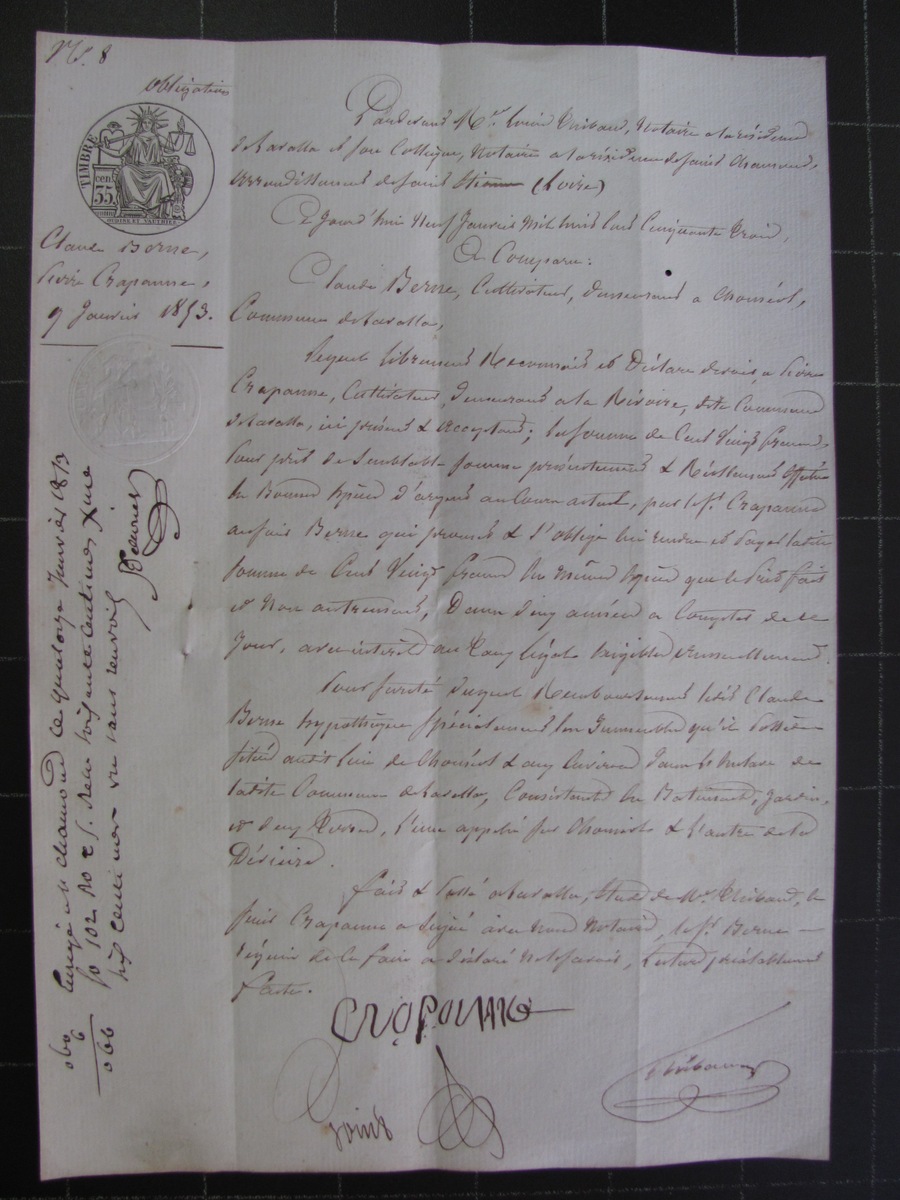 N°. 8
obligation
TIMBRE
cen. 35
Claude Berne,
Pierre Crapanne,
9 Janvier 1853.
Pardevant Me. Thibaud, Notaire a la résidence
de Lavalla et son Collègue, Notaire a la résidence de Saint Chamond,
Arrondissement de Saint Etienne (Loire)
Ce Jourd'hui Neuf Janvier Mil huit Cent Cinquante Trois,
a Comparu:
Claude Berne, Cultivateur, demeurant a
Commune de Lavalla,
Lequel librement Reconnait et Déclare devoir, a Pierre
Crapanne, Cultivateur, demeurant a la Rivoire, dite Commune
de Lavalla, ici présent & Acceptant; la somme de Cent Vingt francs,
pour prêt de Semblable somme présentement & Réellement effectué
En Bonnes Espèces d'argent au Cours actuel, par le st. Crapanne
audit Berne qui promet & s'oblige lui rendre et payer ladite
somme de Cent Vingt francs En mêmes Espèces que le Prêt fait
et Non autrement, Dans deux années a Compter de ce
Jour, avec intérêt au Taux légal Exigible annuellement.
Pour sureté duquel Remboursement ledit Claude
Berne hypothèque spécialement les Immeubles qu'il Possède
situés audit lieu de & aux Environs dans le
ladite Commune de Lavalla, Consistant En Batiment, Jardin,
et deux Terres, l'une appelée & l'autre de la
fait & Passé a Lavalla, Etude de Me. Thibaud, le
Crapanne a Signé avec Nous Notaires, le st. Berne
requis de le faire a déclaré Ne le savoir, Lecture préalablement
faite.
CRAPANNE
Thibaud
Enregé a St chamond le quatorze Janvier 1853
fo 102 Ro c 5. Reçu soixante centimes
dix centimes sans renvoi
0 60
6
0 66